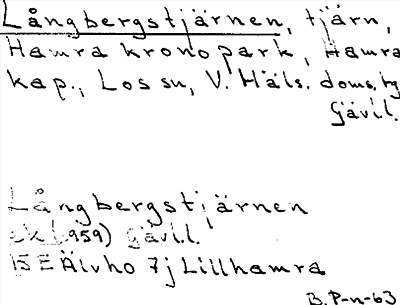 Långbergstjärnen, tjärn,
Hamra kronopark, Hamra
kap., Los sn, V. Häls. doms. tg
Gävl.
Långbergstjärnen
ek (1959) Gävl.l.
15E Älvho 7j Lillhamra
B.P-n-63